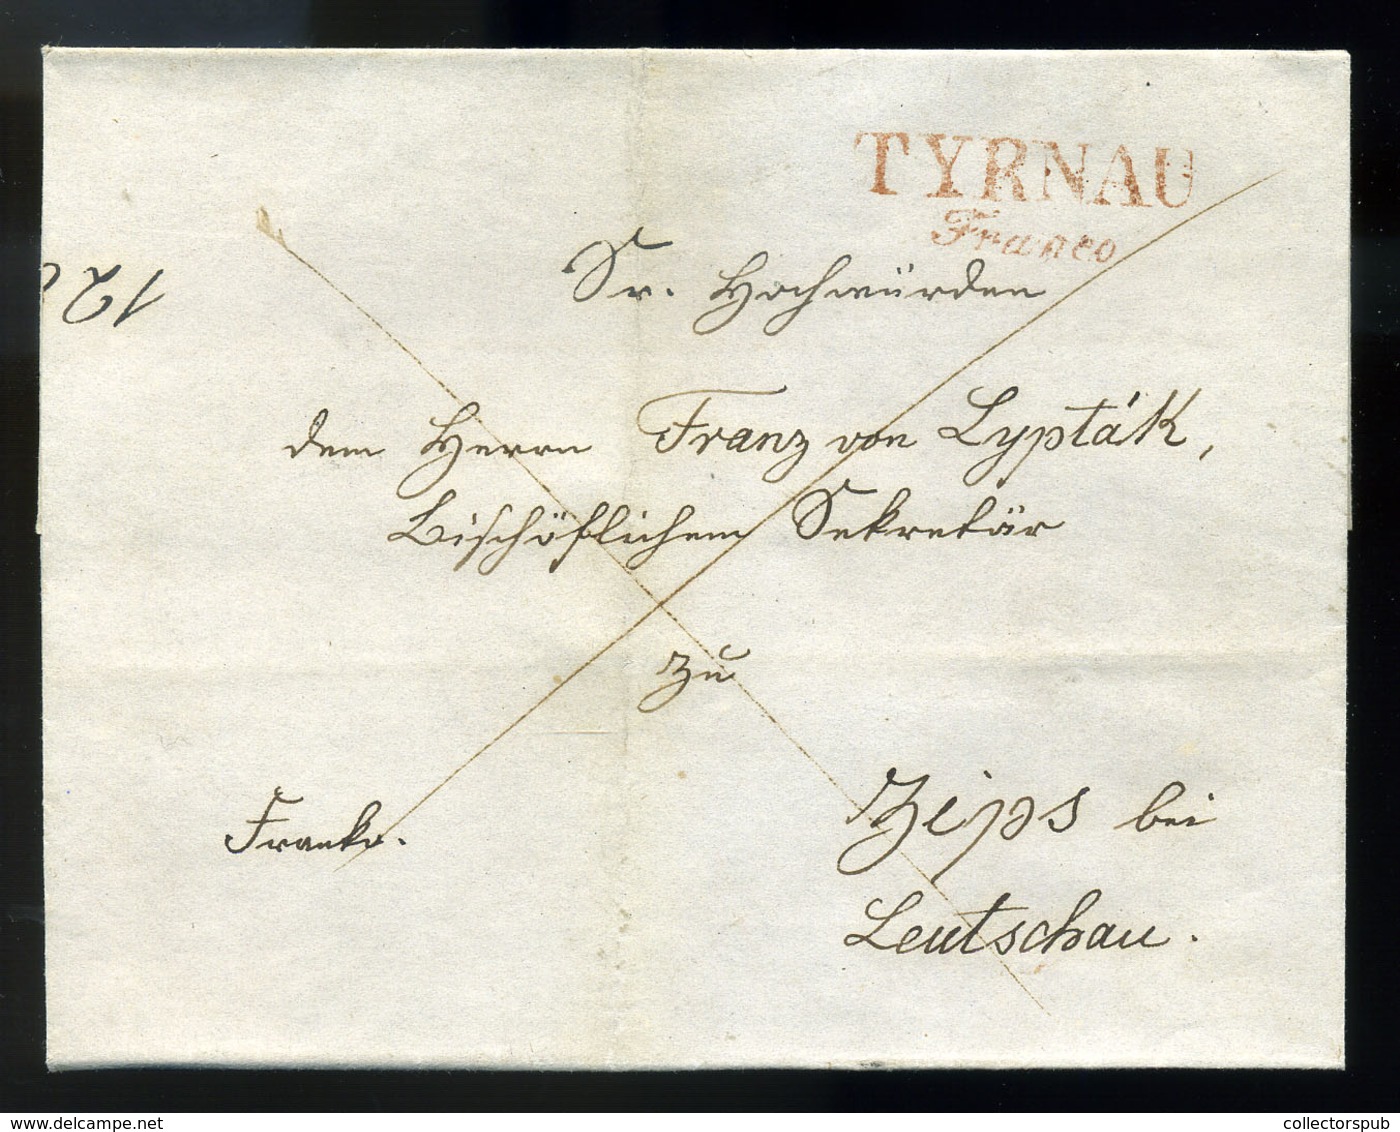 TYRNAU
Franco
Sr. Hochwürden
dem Herrn Franz von Lypták,
Bischöflichem Sekretär
zu
Zips bei
Leutschau.
Franko.
12
www.delcampe.net
collectorspub